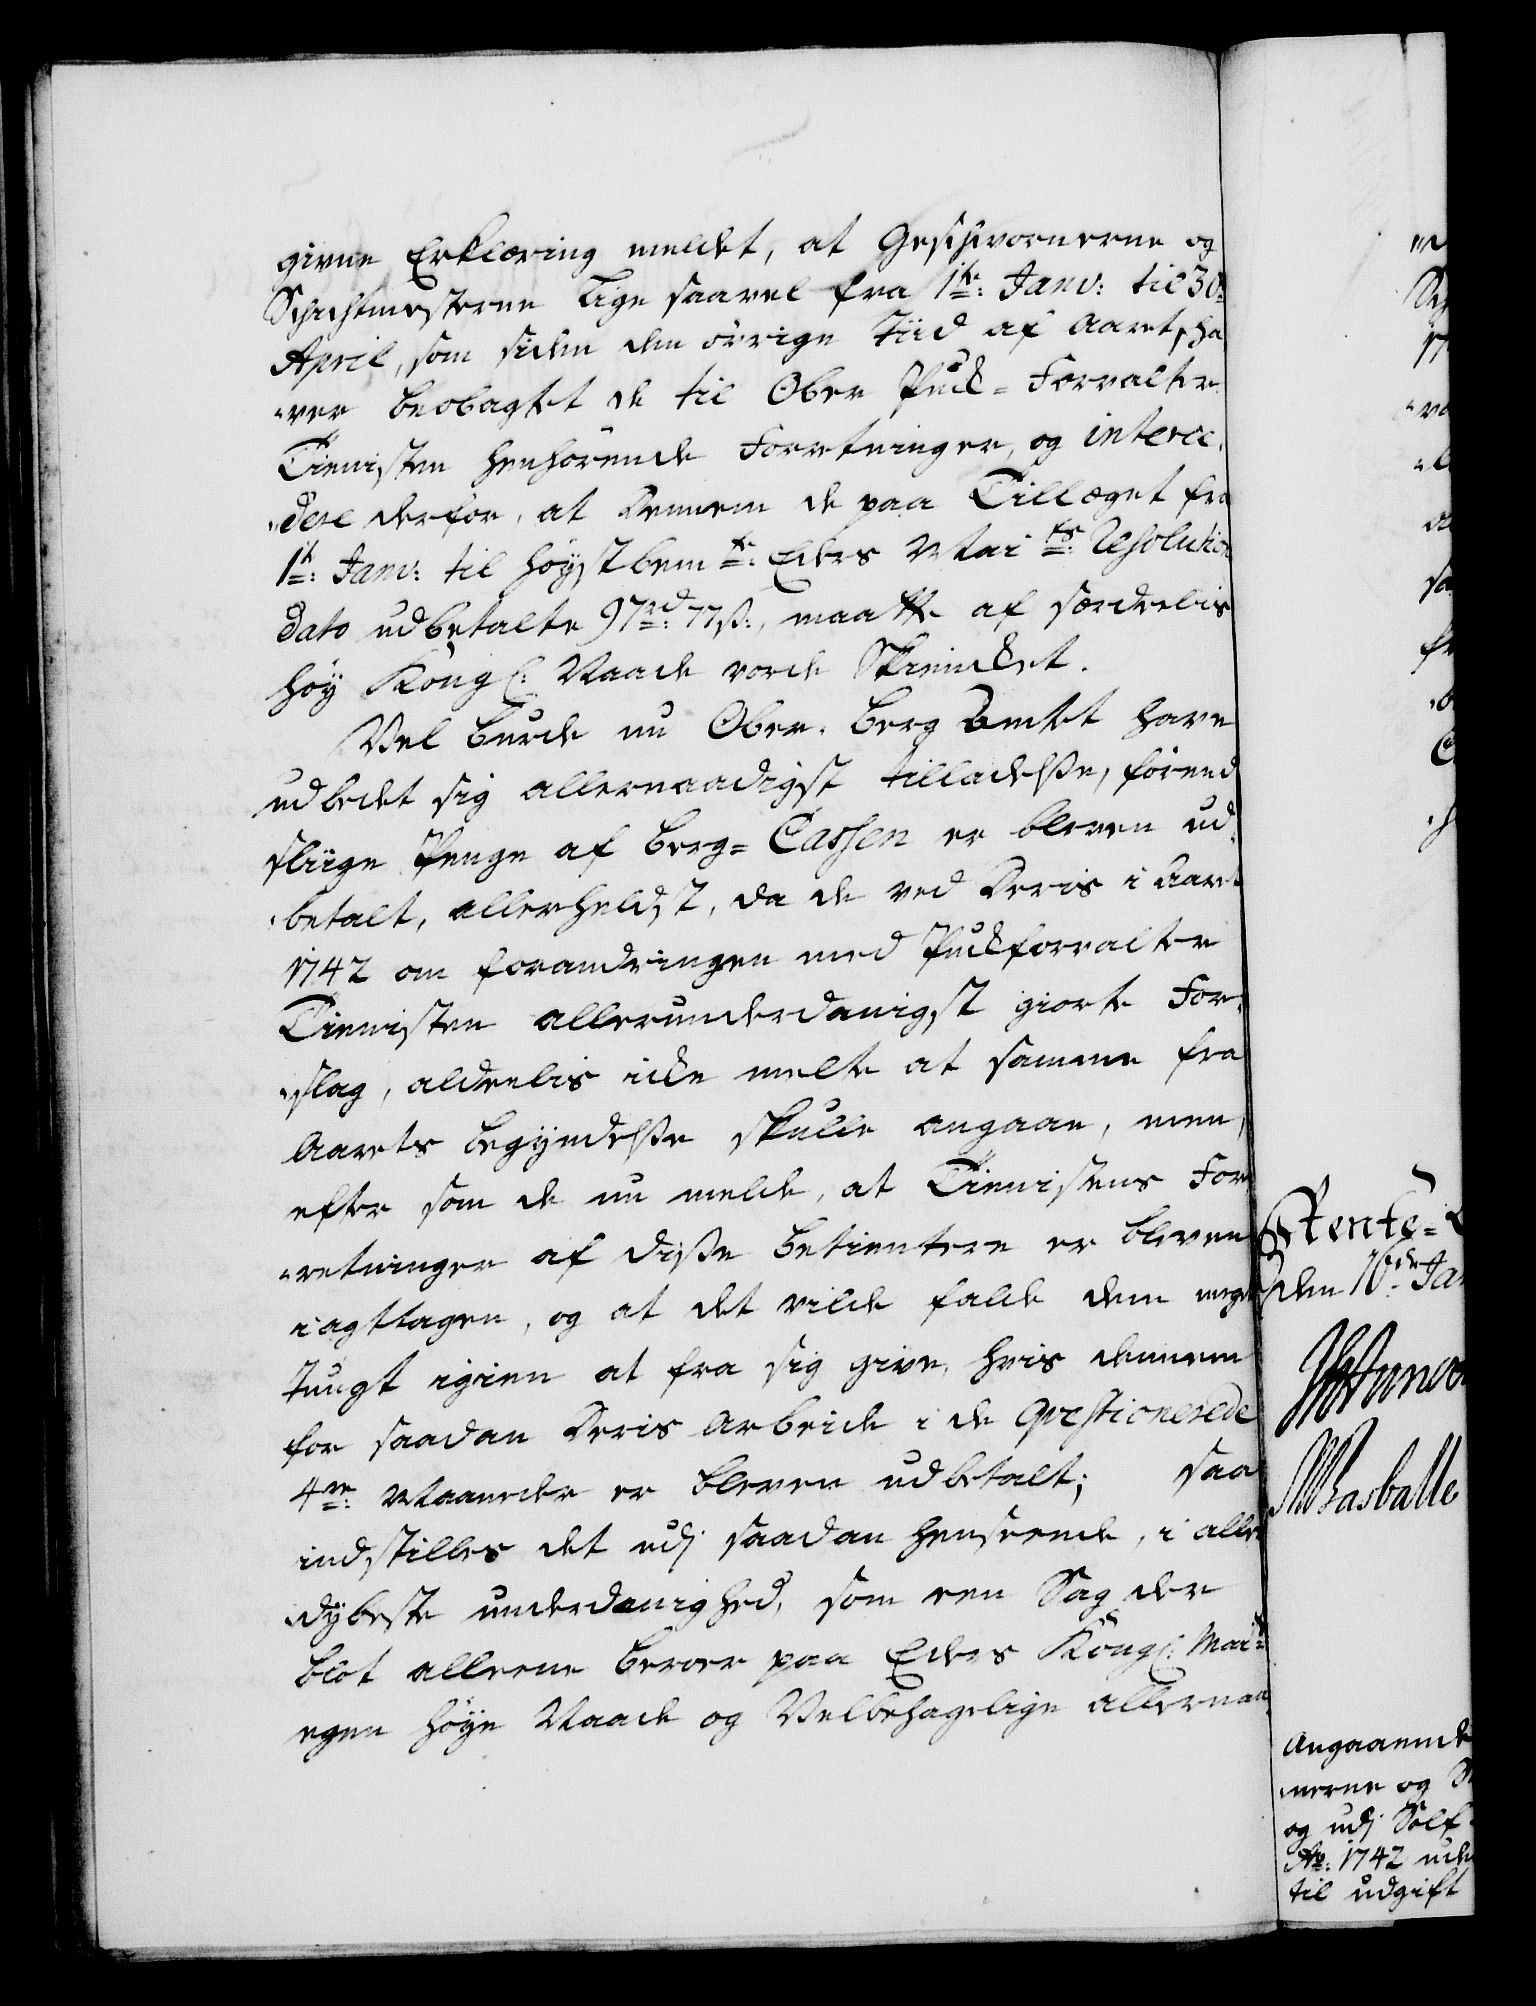 givne Erklæring meldet, at Geschvornerne og
Schichtmesterne lige saavel fra 1te: Janv: til 30:
April, som siden den øvrige Tiid af Aaret, ha
-ver beobagtet de til Ober Puck-Forvalter
Tienisten henhørende Forretninger, og interce-
-dere derfor, at dennem de paa Tillæget fra
1te: Janv: til høystbemte: Eders Mai ts: Resolution
dato udbetalte 97rd: 77ß:, maatte af særdeelis
høy Kongl: Naade vorde Skienckt.
Vel burde nu Ober-Berg Amtet have
udbedet sig allernaadigst tilladelße, førend
sliige Penge af Berg-Cassen er bleven ud-
-betalt, allerheldst, da de ved deris i Aaret
1742 om forandringen med Puckforvalter
Tienisten allerunderdanigst giorte For-
-slag, aldeelis icke melte at samme fra
Aarets begyndelße skulle angaae, men,
efter som de nu melde, at Tienistens For
-retninger af diße Betientere er bleven
iagttagen, og at det vilde falde dem meget
tungt igien at fra sig give, hvis dennem
for saadan deris Arbeide i de Qvestionerede
4re: Maaneder er bleven udbetalt; saa
indstilles det udj saadan henseende, i aller
-dybeste underdanighed, som een Sag der
blot alleene beroer paa Eders Kongl: Mai ts:
egen høye Naade og Velbehagelige allernaa
Rente-
den 16de Jan
Rasballe
Angaaende
-nerne og
og udj Sølf-
Ao: 1742 ude
til udgift